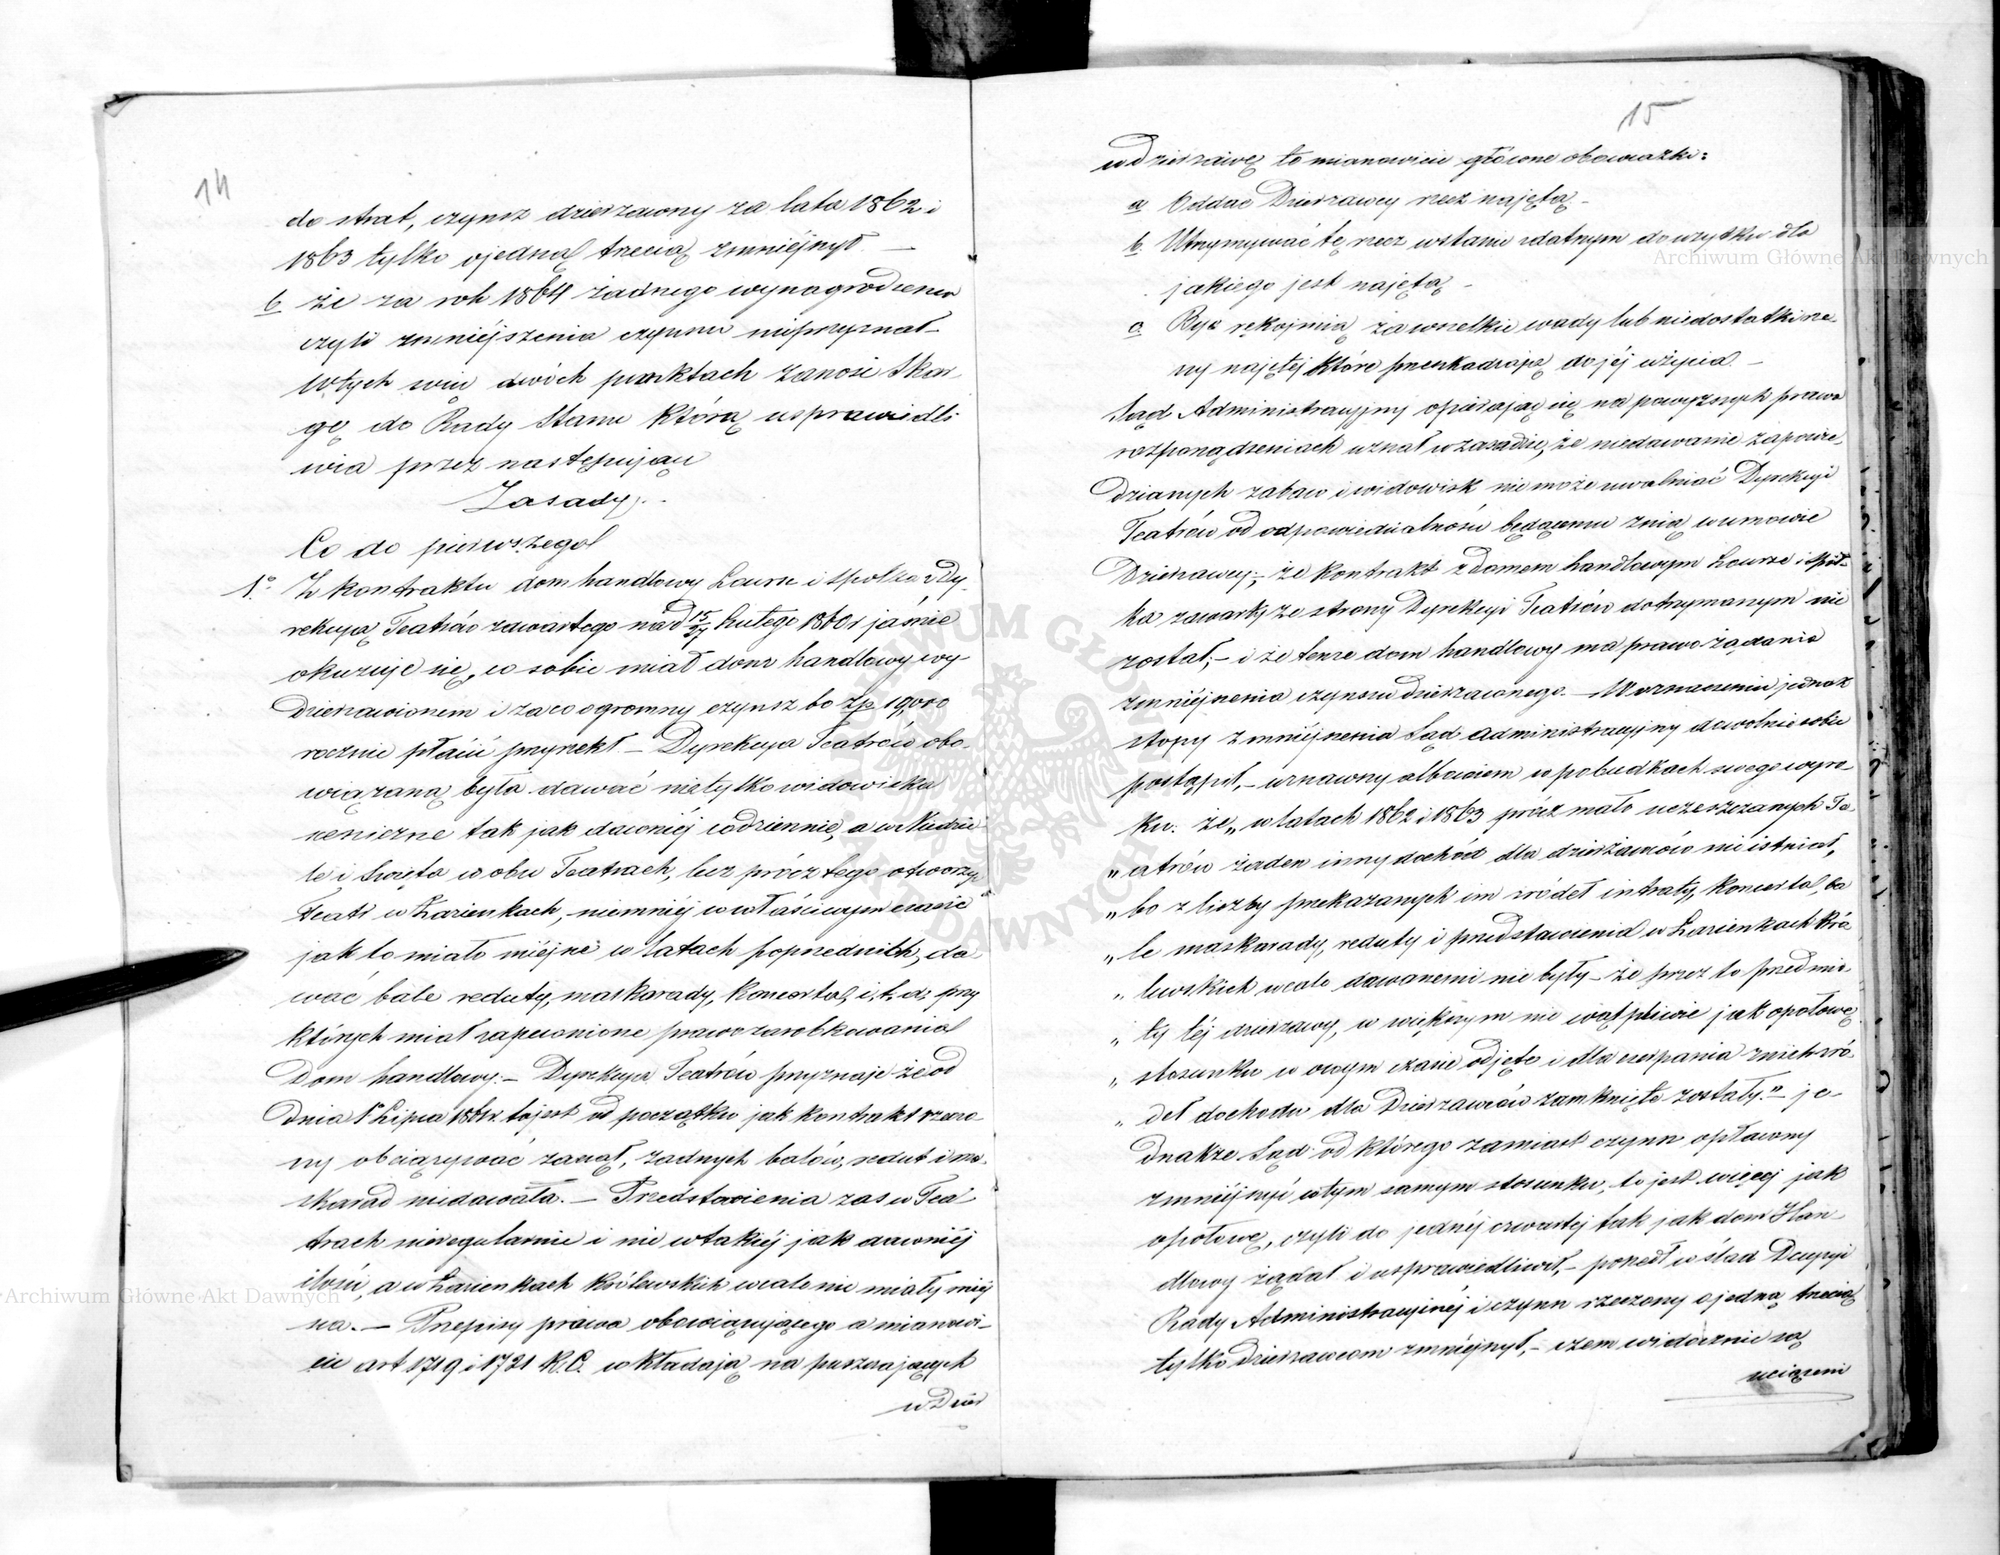 14
do strat, czynsz dzierzawny za lata 1862 i
1863 tylko o jedną trzecią zmniéjszył —
b. że za rok 1864 żadnego wynagrodzenia
czyli zmniéjszenia czynszu nieprzyznał
W tych więc dwóch punktach zanosi Skar-
gę do Rady Stanu którą usprawiedli
wia przez następujące
Zasady.
Co do pierwszego
1º Z kontraktu dom handlowy Lourse i Spółka z Dy-
rekcyą Teatrów zawartego na d 15/27 Lutego 1860 r jaśnie
okazuje się, co sobie miał dom handlowy wy
dzierzawionem i za co ogromny czynsz bo zp. 19,000
rocznie płacić przyrzekł — Dyrekcya Teatrów obo-
wiązaną była dawać nietylko widowiska
sceniczne tak jak dawniéj codziennie, a w Niedzie
le i Święta w obu Teatrach, lecz prócz tego otworzyć
Teatr w Łazienkach, niemniéj w właściwym czasie
jak to miało miéjsce w latach poprzednich, da-
wać bale reduty, maskarady, Koncerta, i, t, d; przy
których miał zapewnione prawo zarobkowania
Dom handlowy. — Dyrekcya Teatrów przyznaje że od
dnia 1º Lipca 1861 r. to jest od początku jak kontrakt rzeczo
ny obciązywać zaczął, żadnych balów, redut i ma-
skarad niedawała. — Przedstawienia zaś w Tea
trach nieregularnie i nie w takiéj jak dawniéj
ilości, a w Łazienkach Królewskich wcale nie miały miéj
sca. — Przepisy prawa obowiązującego a mianowi-
cie art 1719 i 1721 K.C. wkładają na puszczających
w Dzier
15
w dzierzawę to mianowicie główne obowiązki:
a Oddać Dzierzawcy rzecz najętą —
b. Utrzymywać tę rzecz w stanie zdatnym do użytku dla
jakiego jest najętą —
c. Być rękojmią za wszelkie wady lub niedostatki rze-
czy najętéj które przeszkadzają do jéj użycia. —
Sąd Administracyjny opierając się na powyższych prawa
rozporządzeniach uznał w zasadzie, że niedawanie zapowie-
dzianych zabaw i widowisk nie może uwalniać Dyrekcyi
Teatrów od odpowiedzialności będącemu z nią w umowie
Dzierzawcy; że Kontrakt z domem handlowym Lourse i Spół-
ka zawarty ze strony Dyrekcyi Teatrów dotrzymanym nie
został; — i że tenże dom handlowy ma prawo żądania
zmniéjszenia czynszu dzierzawnego. — W oznaczeniu jednak
stopy zmniéjszenia Sąd administracyjny dowolnie sobie
postąpił, — uznawszy albowiem w pobudkach swego wyro-
ku: że „w latach 1862 i 1863 prócz mało uczęszczanych Te-
„atrów żaden inny dochód dla dzierżawców nie istniał,
„bo z liczby przekazanych im źródeł intraty, Koncerta, ba
„le maskarady, reduty i przedstawienia w Łazienkach Kró
„lewskich wcale dawanemi nie były — że przez to przedmio
„ty téj dzierzawy, w większym nie wątpliwie jak o połowę
„stosunku w owym czasie odjęte i dla czerpania z nich źró-
„deł dochodu dla Dzierzawców zamknięte zostały.” — je-
dnakże Sąd od którego zamiast czynsz opłacony
zmniéjszyć w tym samym stosunku, to jest więcéj jak
o połowę, czyli do jednéj czwartéj tak jak dom Han-
dlowy żądał i usprawiedliwił, — poszedł w ślad Decyzyi
Rady Administracyjnéj i czynsz rzeczony o jedną trzecią
tylko Dzierzawcom zmniéjszył, — czem widocznie są
uciązeni
Archiwum Główne Akt Dawnych
Archiwum Główne Akt Dawnych
ARCHIWUM GŁÓWNE AKT DAWNYCH